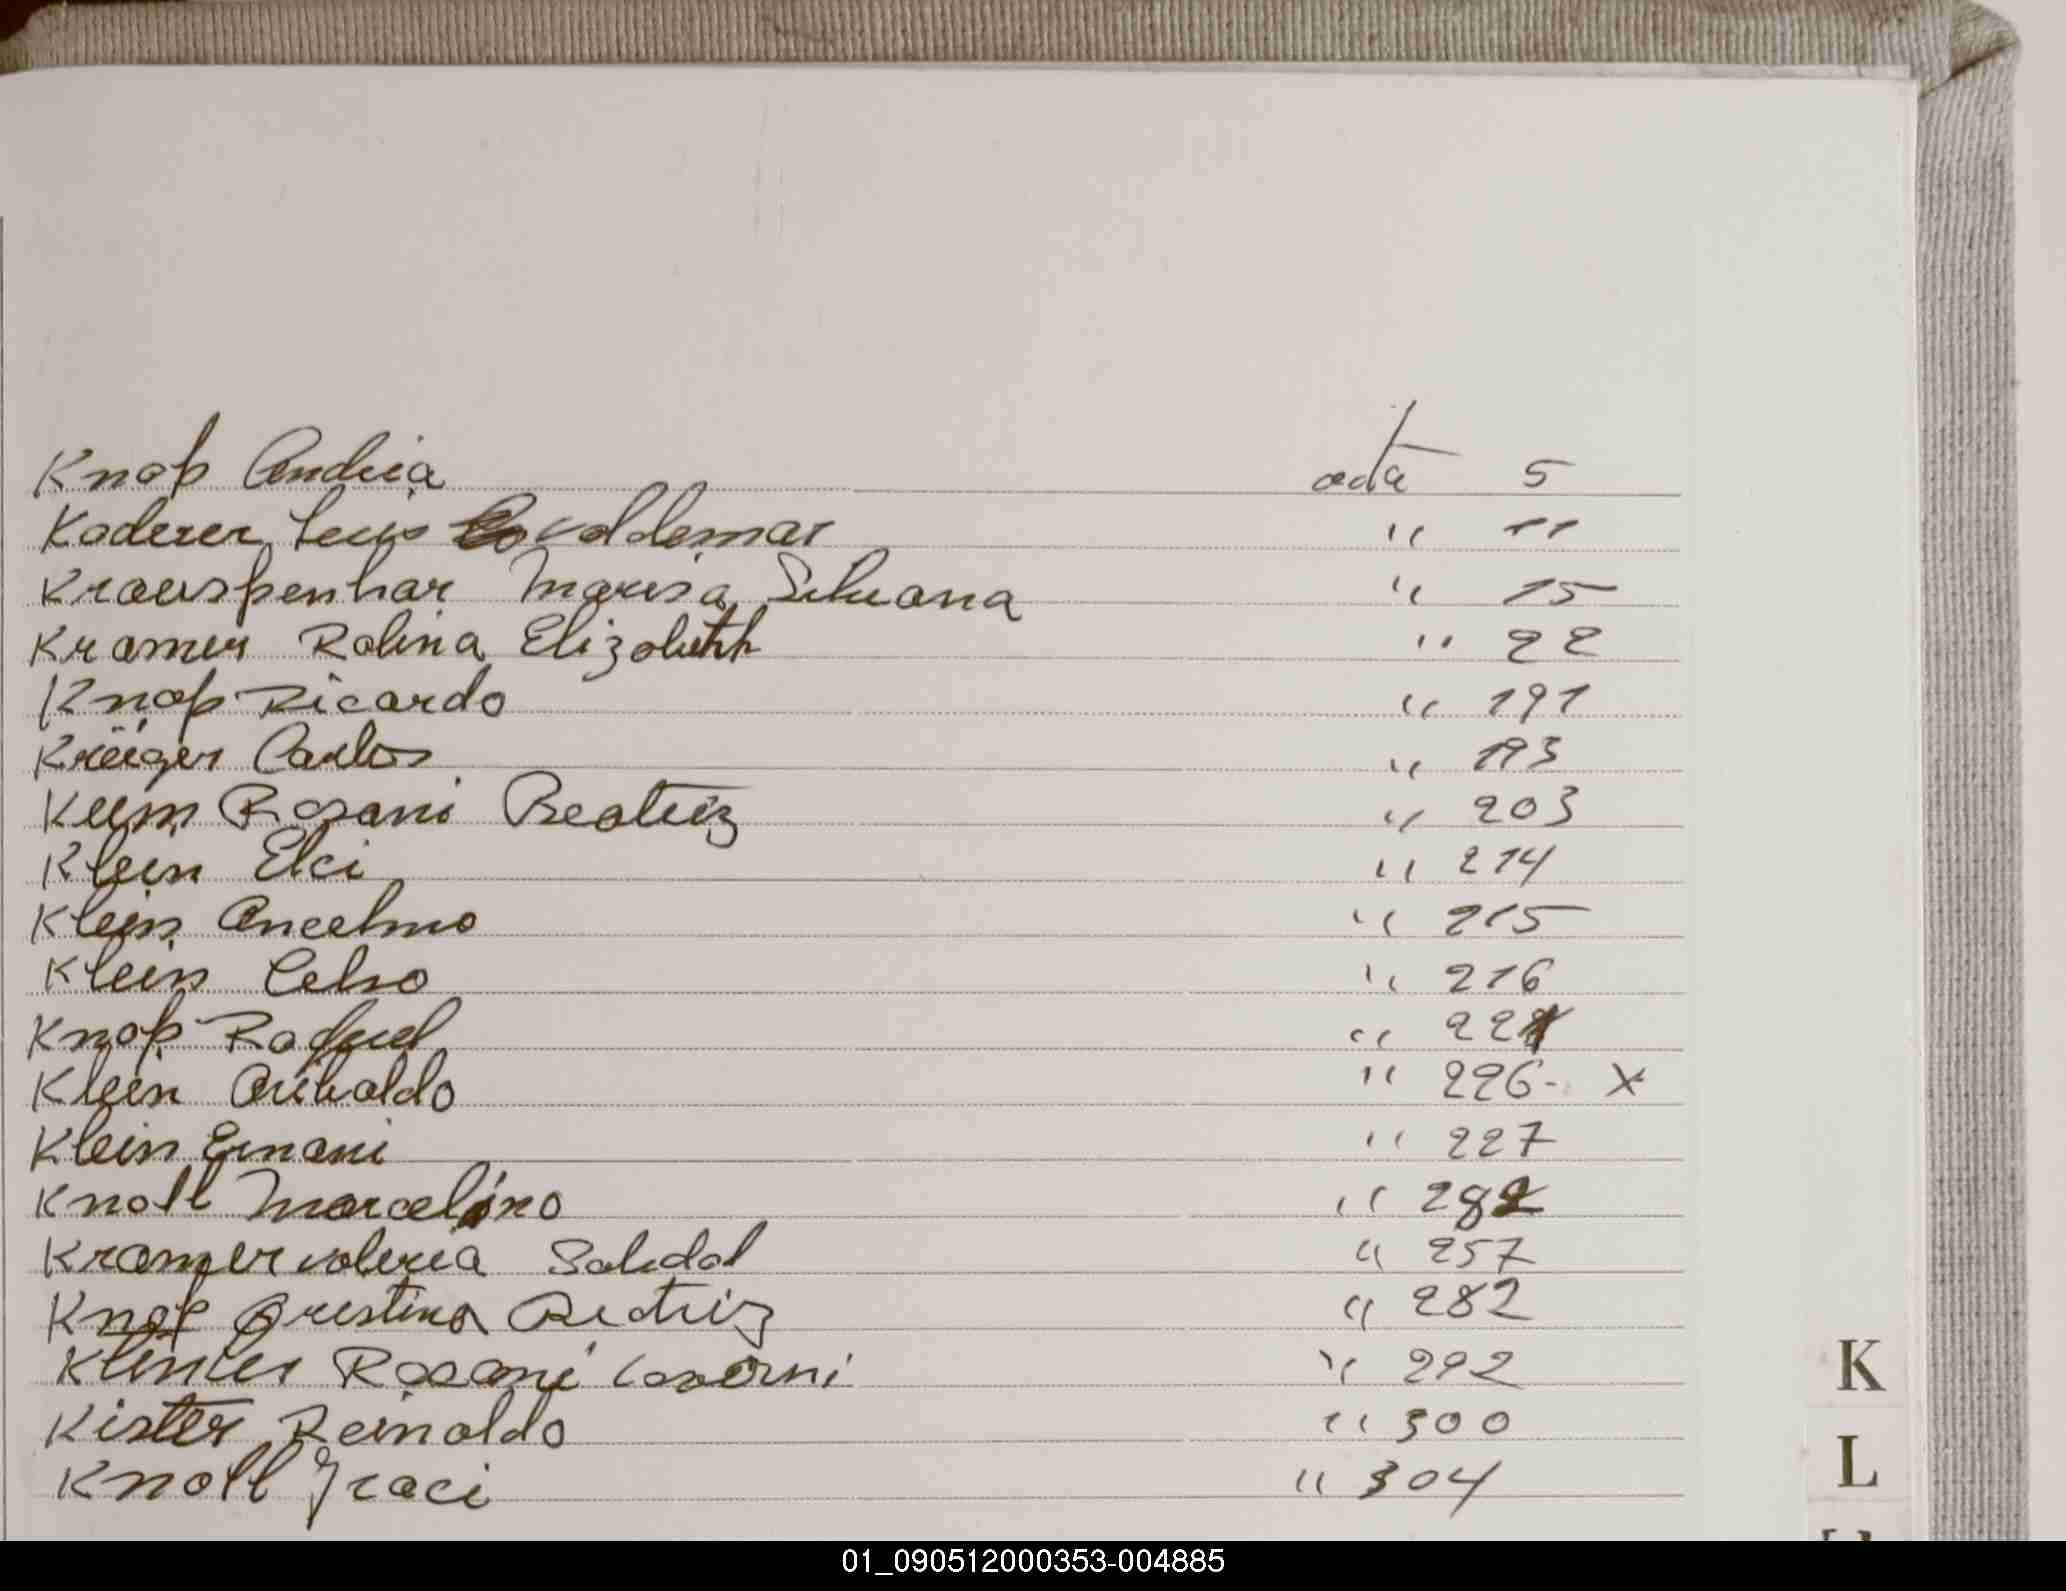 Knop Andréia ata 5
Koderer Luis Valdemar " 11
Krauspenhar Marisa Silvana " 15
Kramer Rolina Elizabeth " 22
Knop Ricardo " 191
Krüiger Carlos " 193
Keim Rosani Beatriz " 203
Klein Elci " 214
Klein Ancelmo " 215
Klein Celso " 216
Knop Raquel " 221
Klein Aribaldo " 226- X
Klein Ernani " 227
Knoll Marcelino " 282
Kramer Valeria Soledad " 257
Knop Cristina Beatriz " 282
Rosani " 292
Kister Reinaldo " 300
Knoll Iraci " 304
K
L
01_090512000353-004885